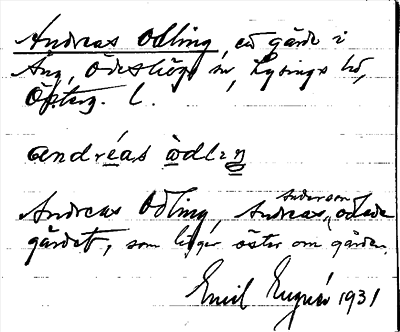 Andreas Odling, ett gärde i
Äng, Ödeshögs sn, Lysings hd,
Österg. l.
andréas òdlıŋ
Andreas Odling, Andreas Anderson odlade
gärdet, som ligger öster om gården.
Emil 1931